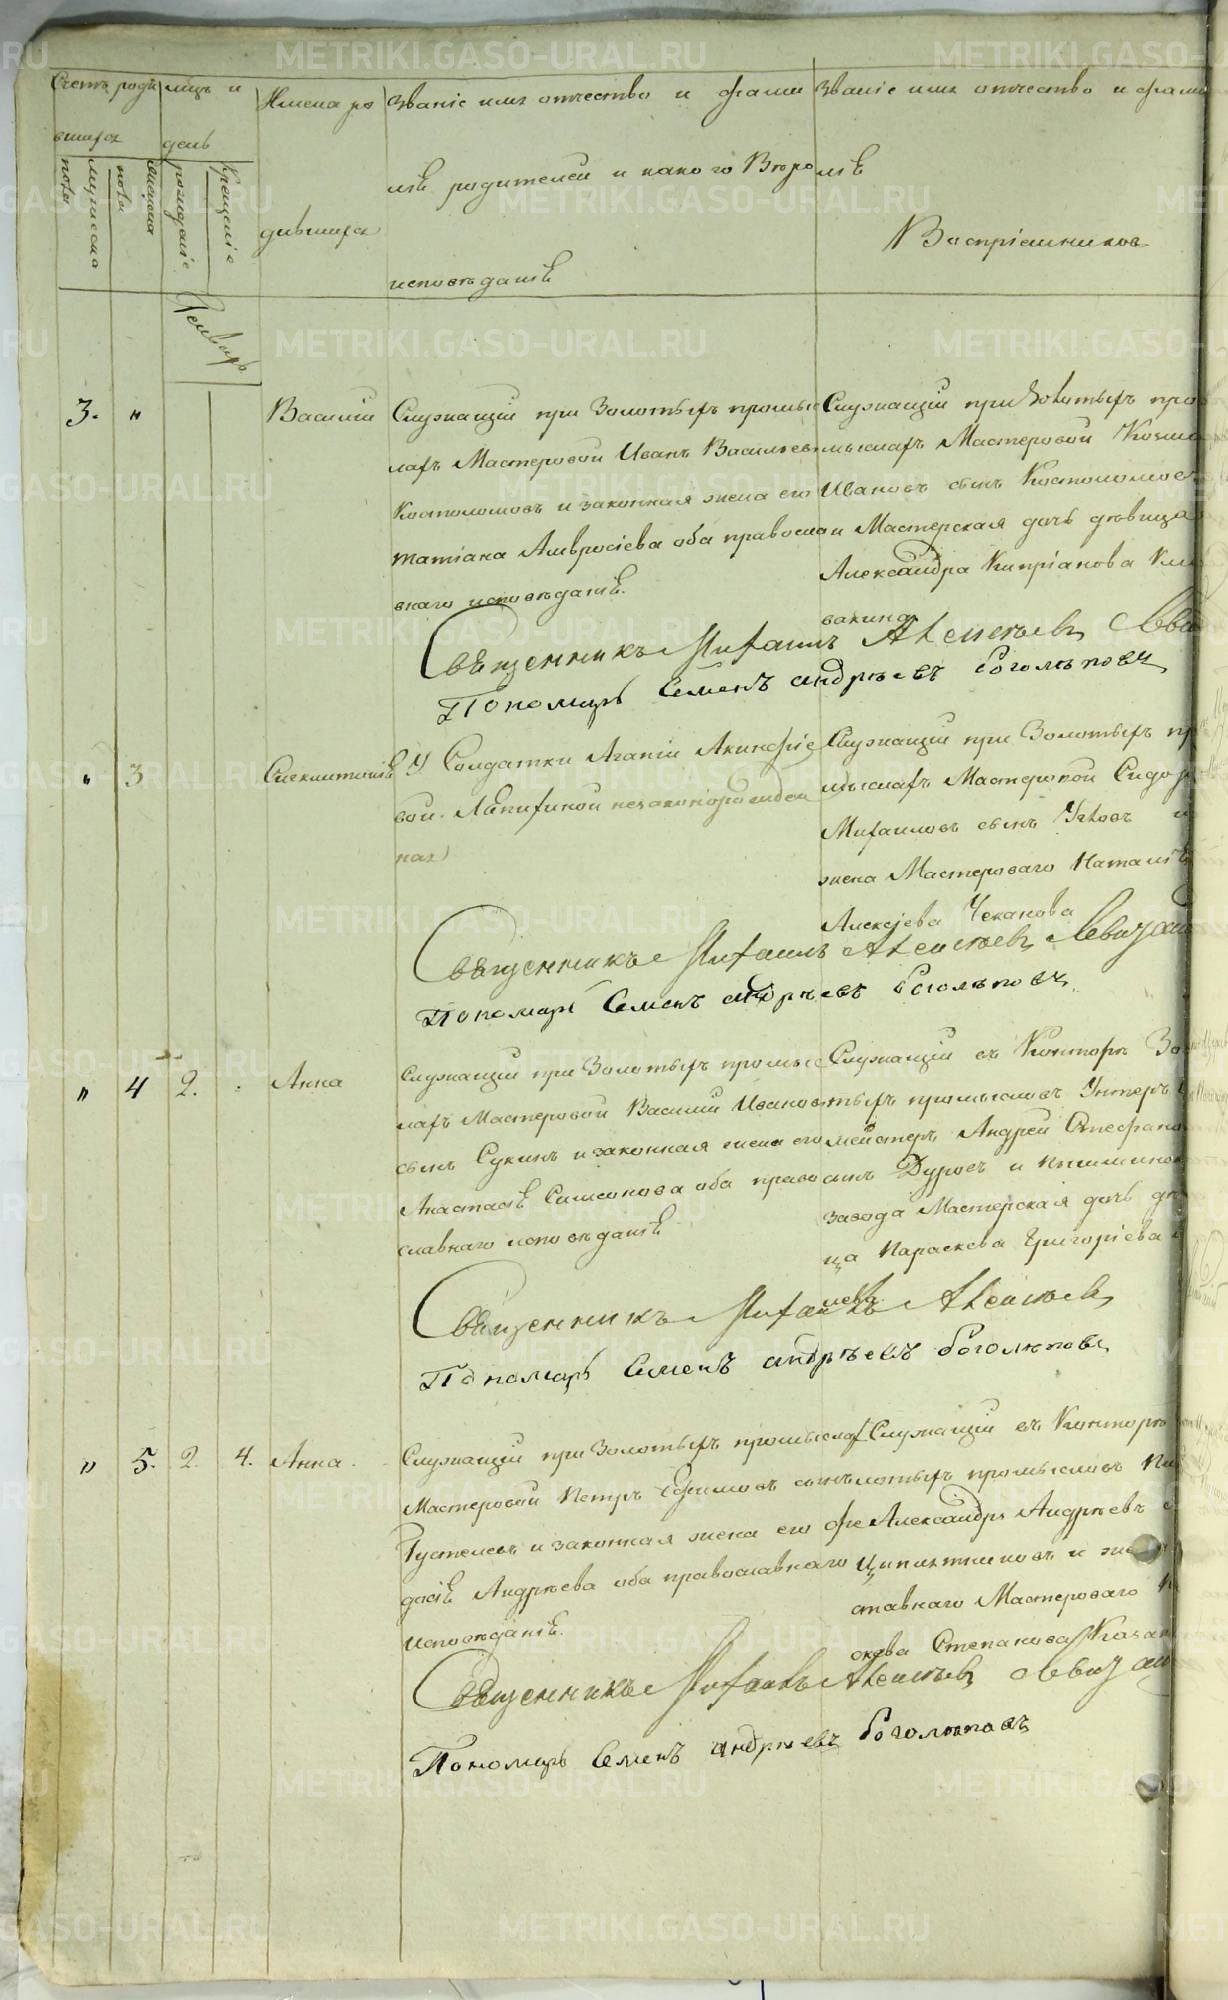 Счетъ роди
вшихся
мужеска
пола
женска
пола
мѣсяцъ и
день
рожденіе
крещеніе
Имена ро
дившихся
Званіе имя отчество и фами
ліѣ родителей и какого Вѣро
исповѣданіѣ
Званіе имя отчество и фами
ліѣ
Воспріемниковъ
Генварь
3. "
Василій
Служащій при Золотыхъ промыс
лахъ Мастеровой Иванъ Васильевъ
Костоломовъ и законная жена его
татіана Амвросіева оба правосла
внаго исповѣданіѣ.
Служащій при Золотыхъ про
мыслахъ Мастеровой Козма
Ивановъ сынъ Костоломовъ
и Мастерская дочь дѣвица
Александра Кипріанова
вакина
Священникъ Михаилъ Алексѣевъ
Пономарь Семенъ андрѣевъ боголѣповъ
" 3
У Солдатки Агапіи Акинфіе
вой незаконорожден
ная
Служащій при Золотыхъ пр
мыслахъ Мастеровой Сидоръ
Михаиловъ сынъ и
жена Мастероваго Наталіѣ
Алексѣева Чеканова
Священникъ Михаилъ Алексѣевъ Левицкій
Пономарь Семенъ андрѣевъ боголѣповъ
" 4 2.
Анна
Служащій при Золотыхъ промыс
лахъ Мастеровой Василій Ивановъ
сынъ Сукинъ и законная жена его
Анастасіѣ Симеонова оба право
славнаго исповѣданіѣ
Служащій въ Конторѣ Зо
тыхъ промысловъ Унтеръ
мейстеръ Андрей Стефано
сынъ и пышминскаго
завода Мастерская дочь дѣ
ца Параскева Григоріева
иева
Священникъ Михаилъ Алексѣевъ
Пономарь Семенъ андрѣевъ боголѣповъ
" 5. 2. 4.
Анна.
Служащій при Золотыхъ промыслах
Мастеровой Петръ Ефимовъ сынъ
Густелевъ и законная жена его фе
досіѣ Андрѣева оба православнаго
исповѣданіѣ.
Служащій въ Конторѣ
лотыхъ промысловъ
Александръ Андрѣевъ
и
ставнаго Мастероваго
Степанова
Священникъ Михаилъ Алексѣевъ Левицкій
Пономарь Семенъ андрѣевъ боголѣповъ
METRIKI.GASO-URAL.RU